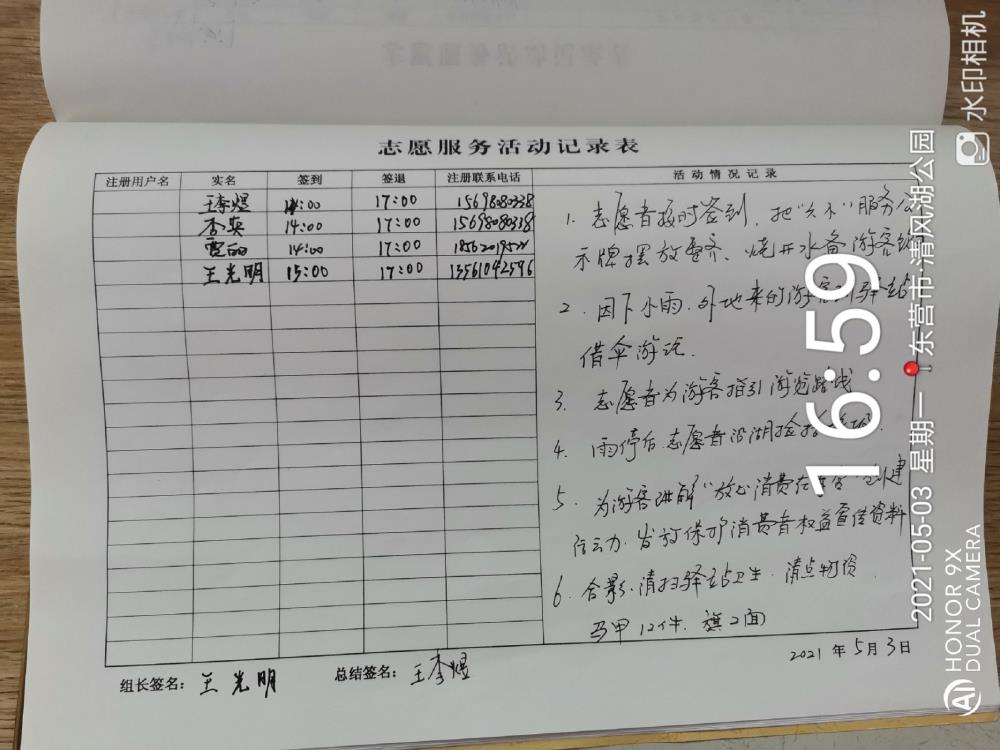 志愿服务活动记录表
注册用户名 实名 签到 签退 注册联系电话 活动情况记录
王李煜 14:00 17:00 15698080338
李英 14:00 17:00 15698080338
14:00 17:00
王光明 15:00 17:00 13561042596
1. 志愿者按时签到,把 服务公
示牌摆放整齐、烧开水备游客
2. 因下小雨,外地来的游客 驿站
借伞游玩.
3. 志愿者为游客指引游览路线
4. 雨停后,志愿者沿湖捡拾
5. 为游客讲解“放心消费在 创建
活动,发放保护消费者权益宣传资料
6. 合影、清扫驿站卫生、清点物资
马甲12件、旗2面
2021年5月3日
组长签名:王光明 总结签名:王李煜
水印相机
16:59
2021-05-03 星期一 东营市·清风湖公园
HONOR 9X
AI DUAL CAMERA